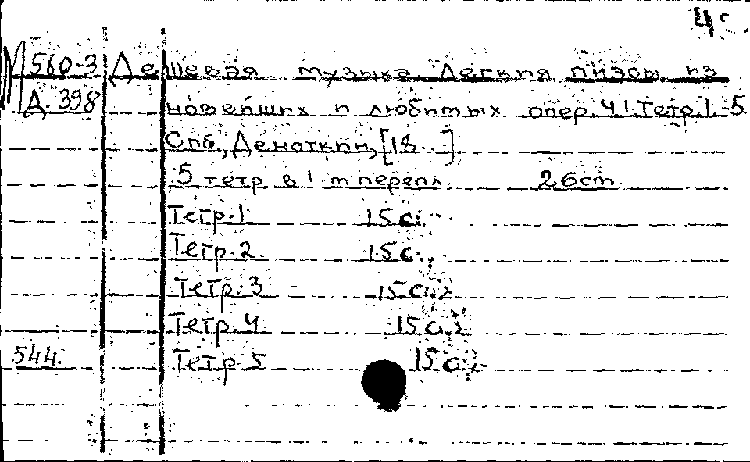 4с.
М 560-3 Дешевая музыка. Легкия пиэсы из
Д. 398 новейших и любимых опер. Ч 1. Тетр. 1-5
Спб., Деноткин, [18...]
5 тетр в 1 т перепл. 26cm
Тетр. 1 15 с.
Тетр. 2 15 с.
Тетр. 3 15 с.
Тетр. 4 15 с.
544. Тетр. 5 15 с.